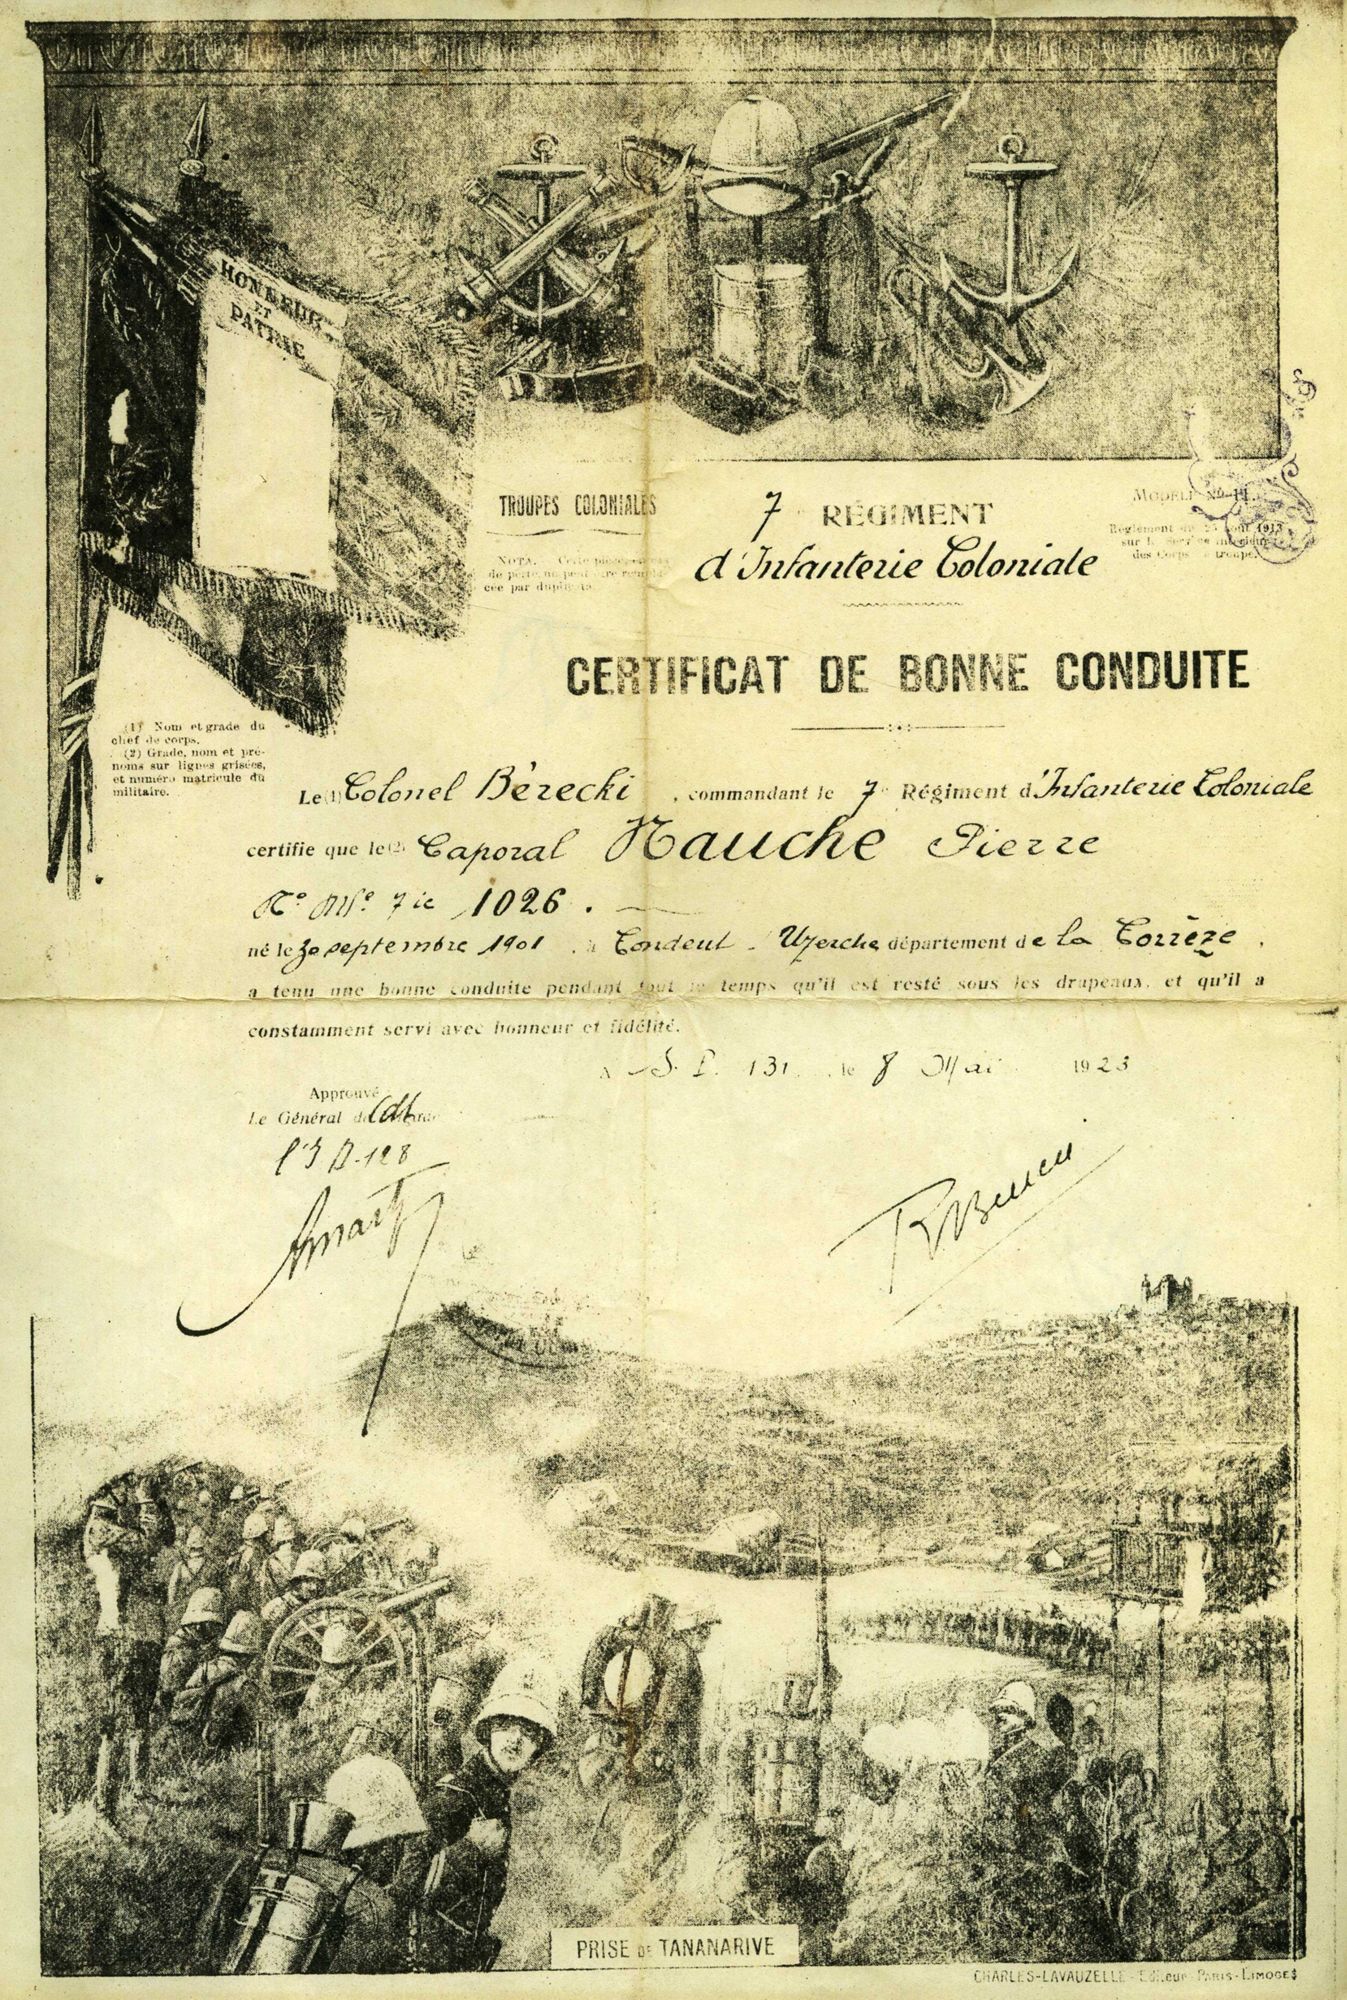 HONNEUR
ET
PATRIE
TROUPES COLONIALES
NOTA. Cette pièce
de perte ne peut être rempla-
cée par duplicata.
7e RÉGIMENT
d'Infanterie Coloniale
MODÈLE No 11.
Règlement du 25 août 1913
sur le service intérieur
des Corps de troupe.
CERTIFICAT DE BONNE CONDUITE
(1) Nom et grade du
chef de corps.
(2) Grade, nom et pré-
noms sur lignes grisées,
et numéro matricule du
militaire.
Le (1) Colonel Bérecki, commandant le 7e Régiment d'Infanterie Coloniale
certifie que le (2) Caporal Nauche Pierre
No Mle 7 ic 1026.
né le 30 septembre 1901 à Condeut - Uzerche département de la Corrèze,
a tenu une bonne conduite pendant tout le temps qu'il est resté sous les drapeaux, et qu'il a
constamment servi avec honneur et fidélité.
A S. P. 131 le 8 Mai 1923
Approuvé
Le Général Cdt
l'I D. 128
PRISE DE TANANARIVE
CHARLES-LAVAUZELLE - Editeur - PARIS - LIMOGES